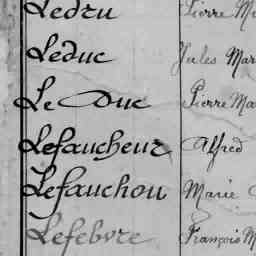 Ledru Pierre
Leduc Jules
Le Duc Pierre
Lefaucheur Alfred
Lefauchou Marie
Lefebvre François